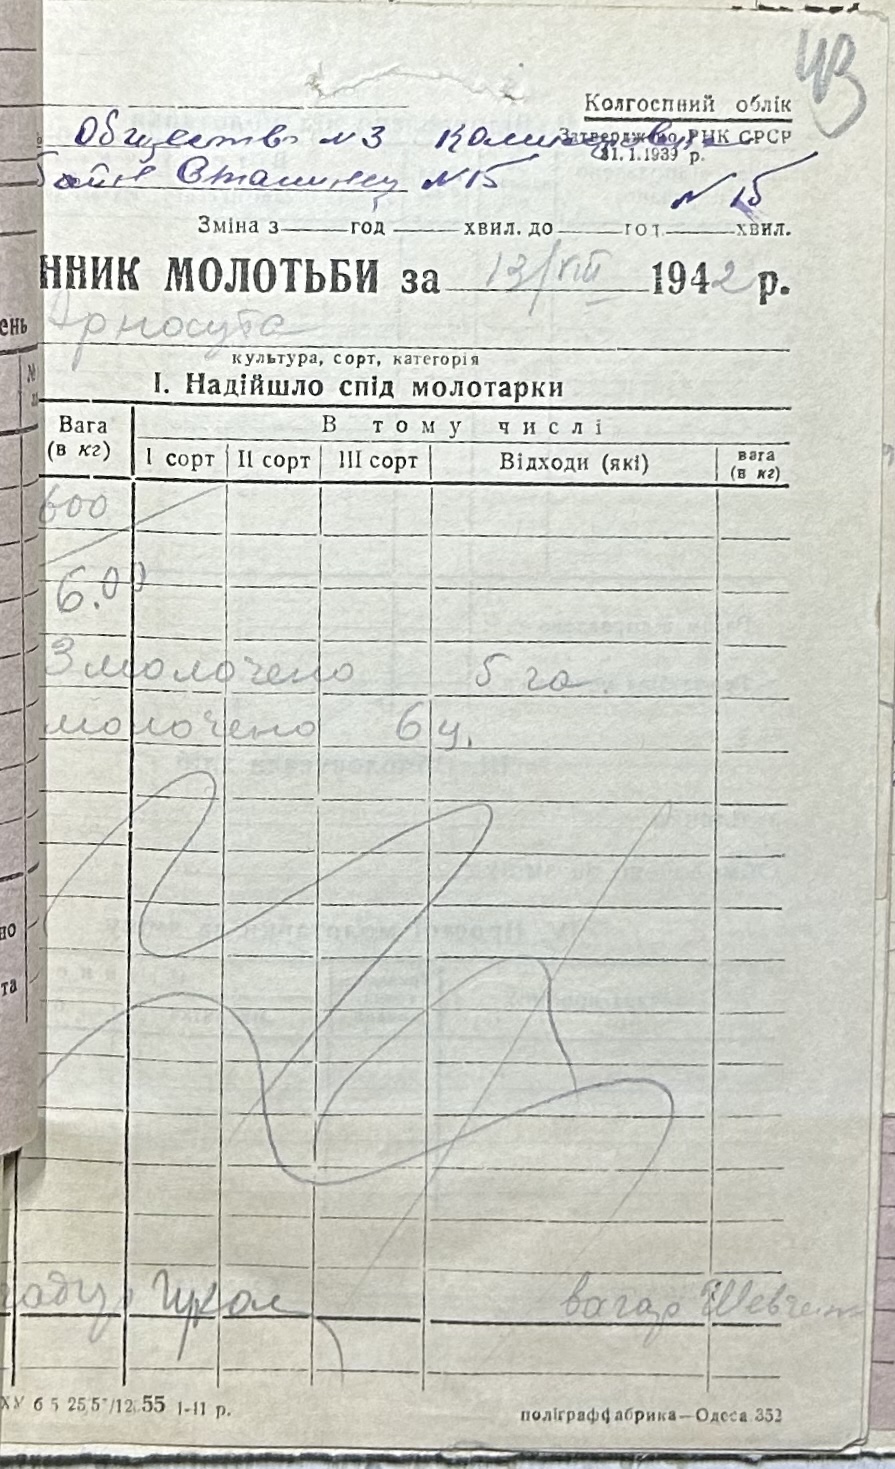 43
Колгоспний облік
Затверджено РНК СРСР
31.1.1939 р.
Общество №3
Сталинец №15
№ 15
Зміна з год хвил. до год. хвил.
ННИК МОЛОТЬБИ за 13/VIII 1942 р.
ень Арнаутка
культура, сорт, категорія
I. Надійшло спід молотарки
Вага (в кг) В тому числі
I сорт II сорт III сорт Відходи (які) вага (в кг)
600
6.00
Змолочено 5 га.
молочено 6 ц.
но
та
вагар Шевчен
ХУ 6 5 25,5"/12. 55 1-11 р.
поліграффабрика—Одеса 352